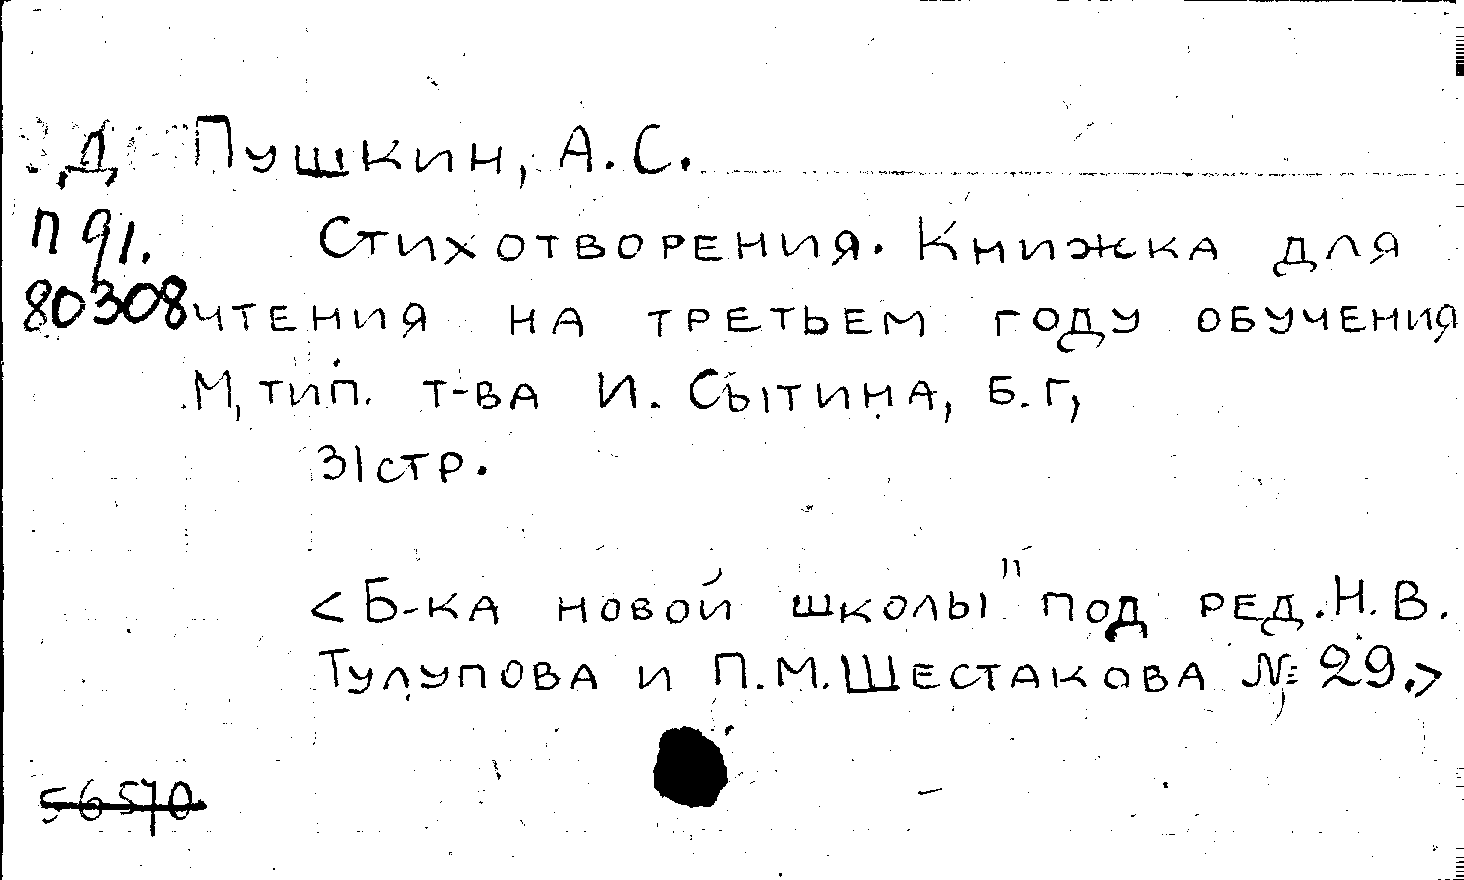 Д Пушкин, А. С.
П 91. Стихотворения. Книжка для
80308 чтения на третьем году обучения
М, тип. т-ва И. Сытина, Б. Г,
31 стр.
<Б-ка новой школы" под ред. Н. В.
Тулупова и П. М. Шестакова № 29.>
56570